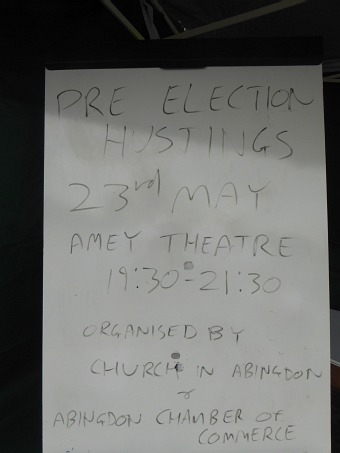 PRE ELECTION
HUSTINGS
23rd MAY
AMEY THEATRE
19:30-21:30
ORGANISED BY
CHURCH IN ABINGDON
&
ABINGDON CHAMBER OF
COMMERCE